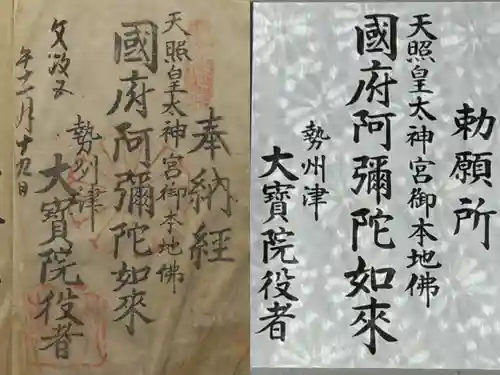 奉納経
天照皇太神宮御本地佛
國府阿彌陀如來
勢州津
大寶院役者
文政五
年十一月十九日
勅願所
天照皇太神宮御本地佛
國府阿彌陀如來
勢州津
大寶院役者